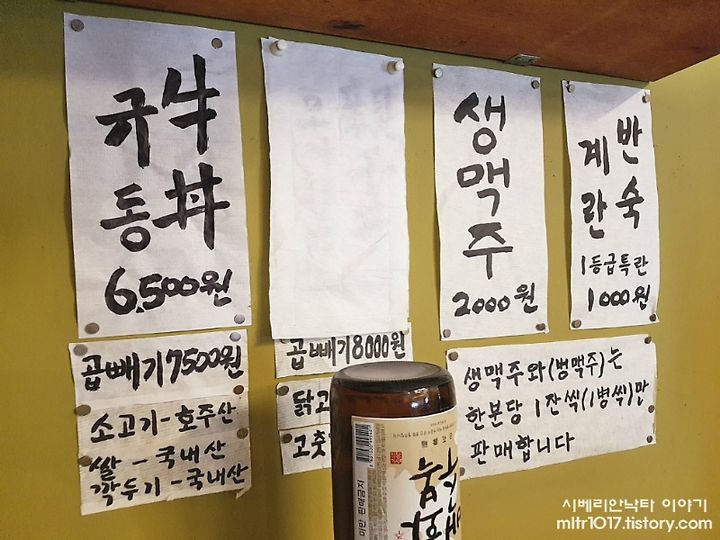 규동
牛丼
6,500원
곱빼기 7500원
소고기-호주산
쌀-국내산
깍두기-국내산
곱빼기 8000원
닭고
고춧
생맥주
2000원
반숙
계란
1등급특란
1000원
생맥주와(병맥주)는
한분당 1잔씩(1병씩)만
판매합니다
시베리안낙타 이야기
mltr1017.tistory.com